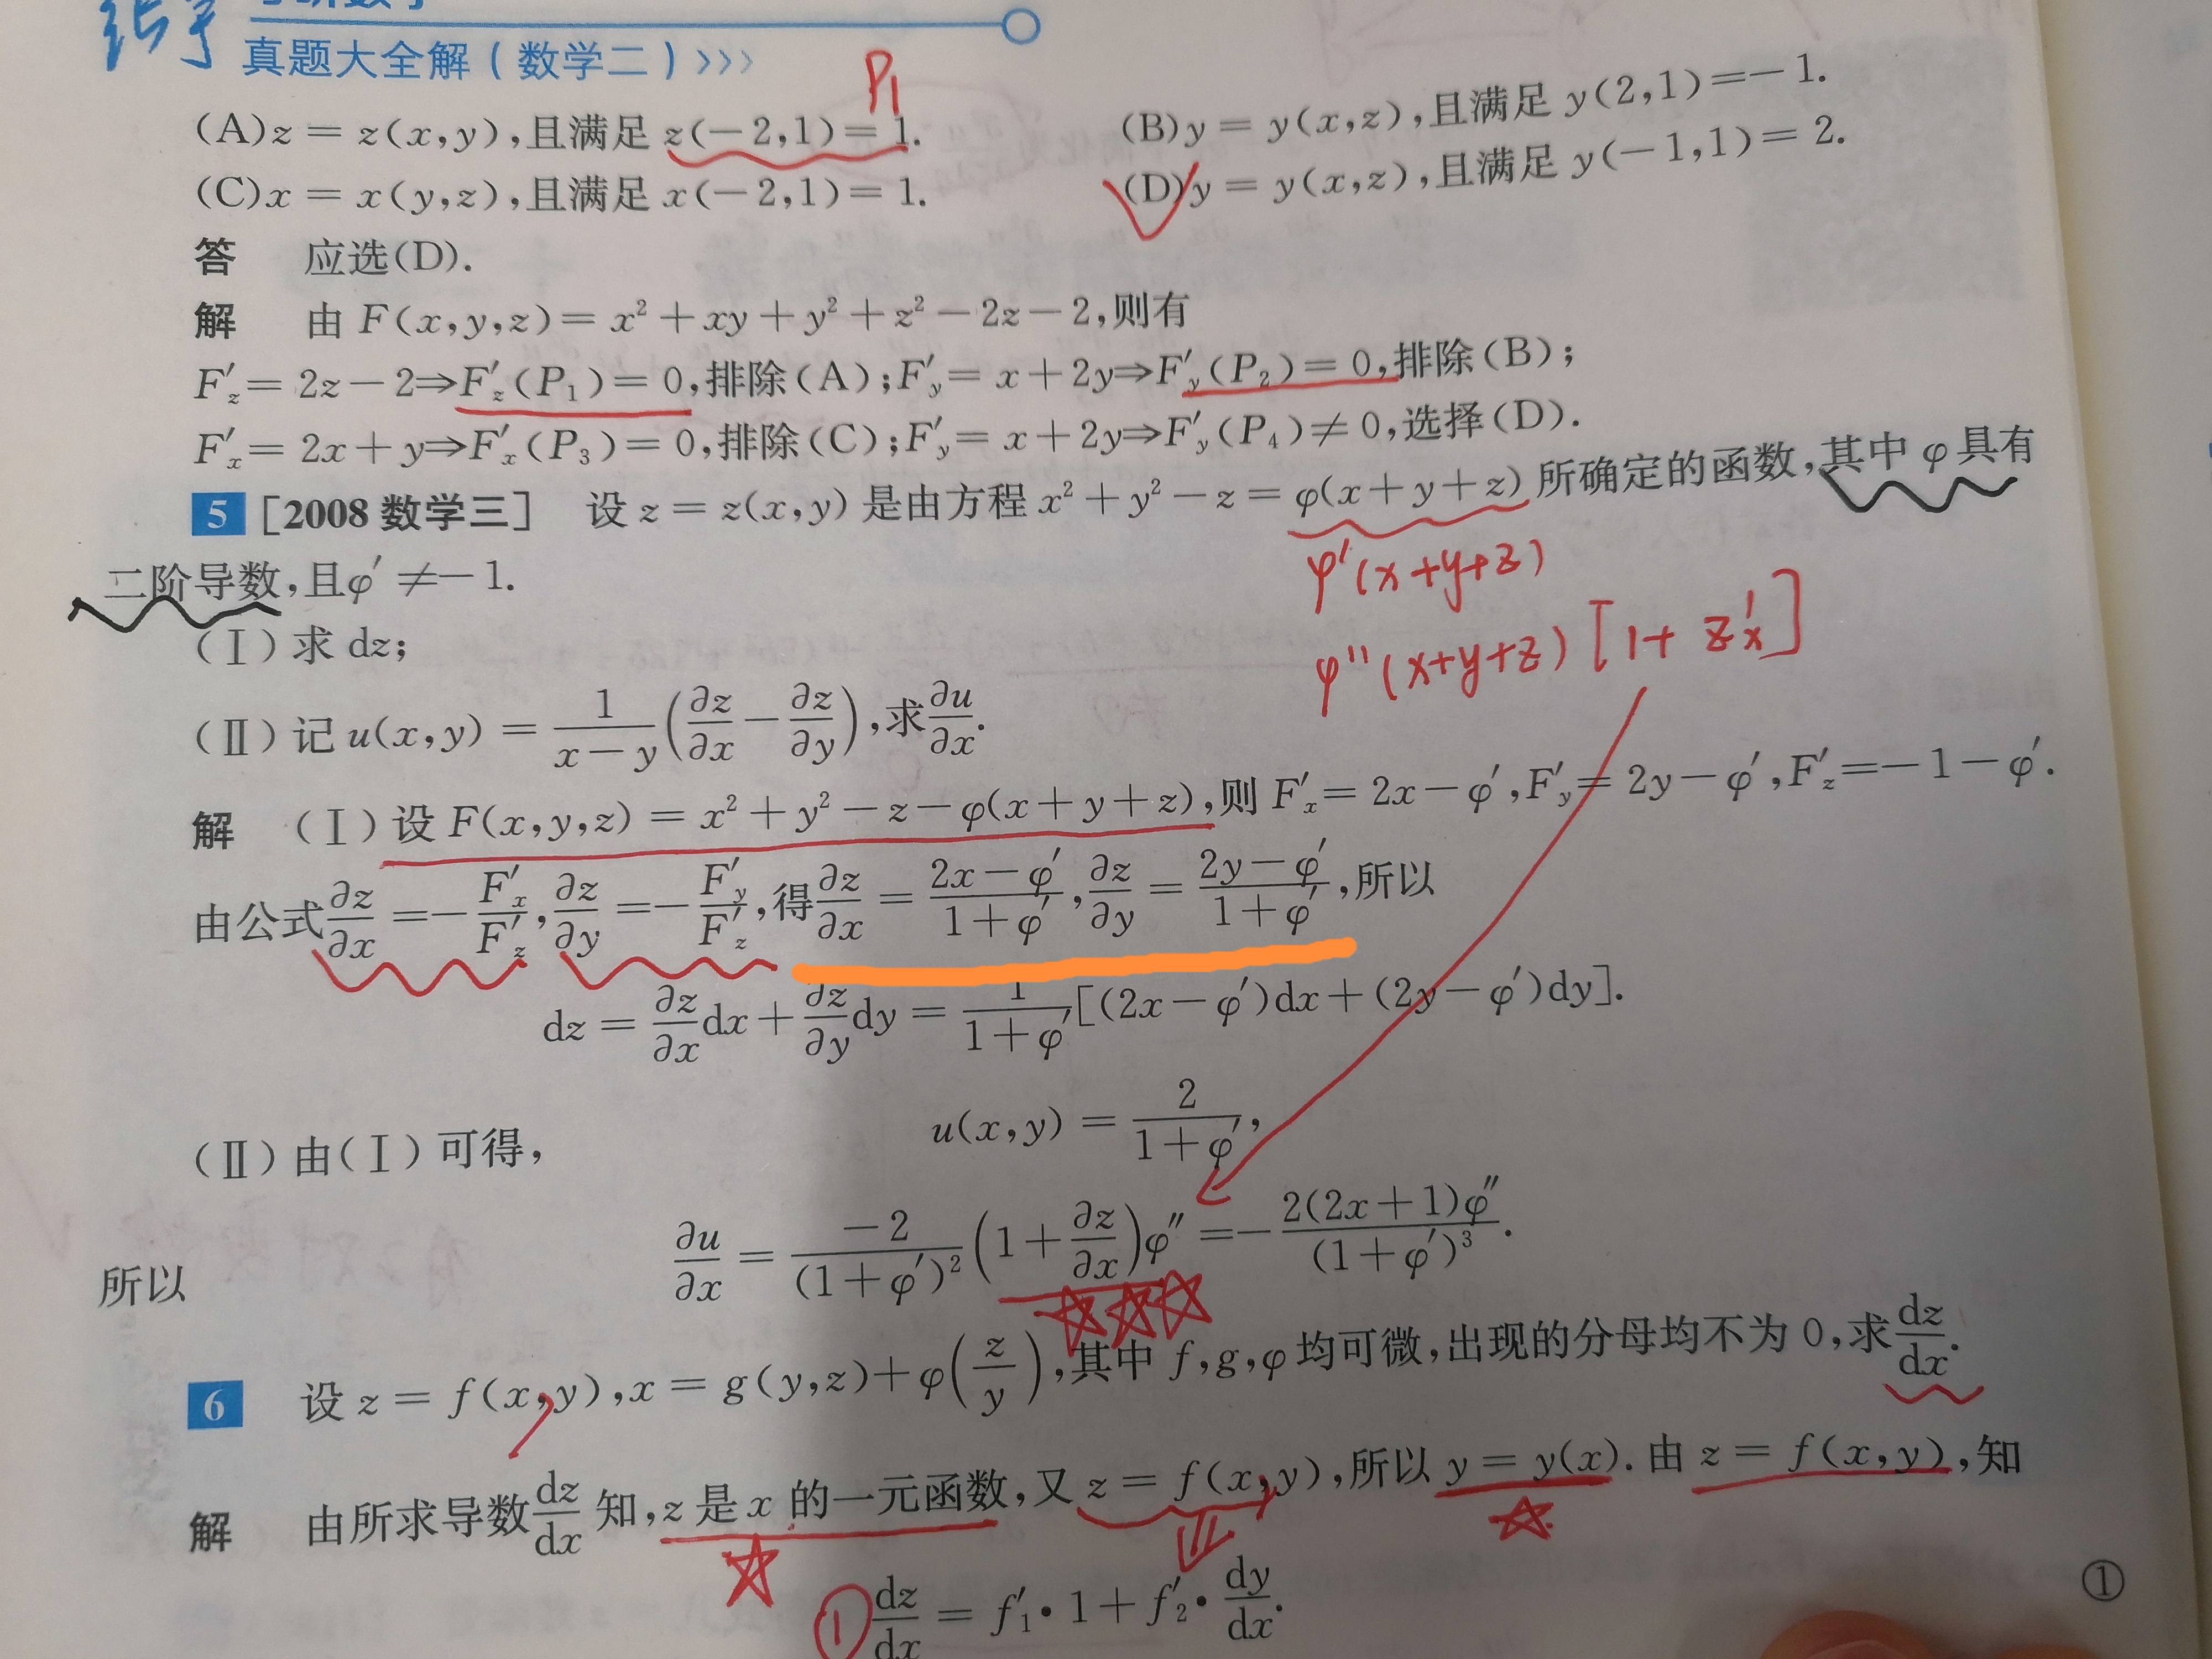 真题大全解(数学二)>>>
P₁
(A)z = z(x,y),且满足 z(−2,1)= 1.
(B)y = y(x,z),且满足 y(2,1)=−1.
(C)x = x(y,z),且满足 x(−2,1)= 1.
(D)y = y(x,z),且满足 y(−1,1)= 2.
答 应选(D).
解 由 F(x,y,z)= x² + xy + y² + z² − 2z − 2,则有
F′z = 2z − 2⇒F′z(P₁)= 0,排除(A);F′y = x + 2y⇒F′y(P₂)= 0,排除(B);
F′x = 2x + y⇒F′x(P₃)= 0,排除(C);F′y = x + 2y⇒F′y(P₄)≠ 0,选择(D).
5 [2008 数学三] 设 z = z(x,y) 是由方程 x² + y² − z = φ(x + y + z) 所确定的函数,其中 φ 具有
二阶导数,且φ′ ≠−1.
φ′(x+y+z)
φ″(x+y+z)[1+ z′x]
(Ⅰ)求 dz;
(Ⅱ)记 u(x,y) = 1/(x − y) (∂z/∂x − ∂z/∂y),求 ∂u/∂x.
解 (Ⅰ)设 F(x,y,z) = x² + y² − z − φ(x + y + z),则 F′x = 2x − φ′,F′y = 2y − φ′,F′z =−1 − φ′.
由公式 ∂z/∂x =− F′x/F′z, ∂z/∂y =− F′y/F′z,得 ∂z/∂x = (2x − φ′)/(1 + φ′), ∂z/∂y = (2y − φ′)/(1 + φ′),所以
dz = ∂z/∂x dx + ∂z/∂y dy = 1/(1 + φ′) [(2x − φ′)dx + (2y − φ′)dy].
(Ⅱ)由(Ⅰ)可得, u(x,y) = 2/(1 + φ′),
所以 ∂u/∂x = −2/(1 + φ′)² (1 + ∂z/∂x)φ″ =− 2(2x + 1)φ″/(1 + φ′)³.
6 设 z = f(x,y),x = g(y,z)+ φ(z/y),其中 f,g,φ 均可微,出现的分母均不为 0,求 dz/dx.
解 由所求导数 dz/dx 知,z 是 x 的一元函数,又 z = f(x,y),所以 y = y(x). 由 z = f(x,y),知
① dz/dx = f′₁ • 1 + f′₂ • dy/dx. ①